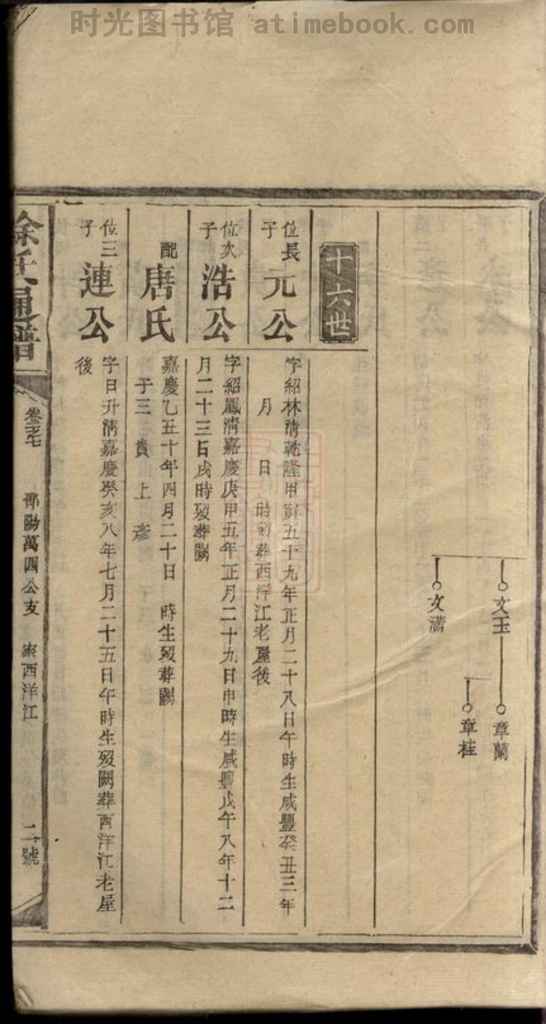 时光图书馆 atimebook.com
文玉
章蘭
章桂
文瀟
十六世
位長子 元公
字紹林清乾隆甲寅五十九年正月二十八日午時生咸豐癸丑三年
月 日 時歿葬西洋江老屋後
位次子 浩公
字紹鳳清嘉慶庚申五年正月二十九日申時生咸豐戊午八年十二
月二十三日戌時歿葬闕
配 唐氏
嘉慶乙丑十年四月二十日 時生歿葬闕
子三 貴 上 彥
位三子 連公
字日升清嘉慶癸亥八年七月二十五日午時生歿闕葬西洋江老屋
後
徐氏通譜
卷之七
邵陽萬四公支
寨西洋江
二號